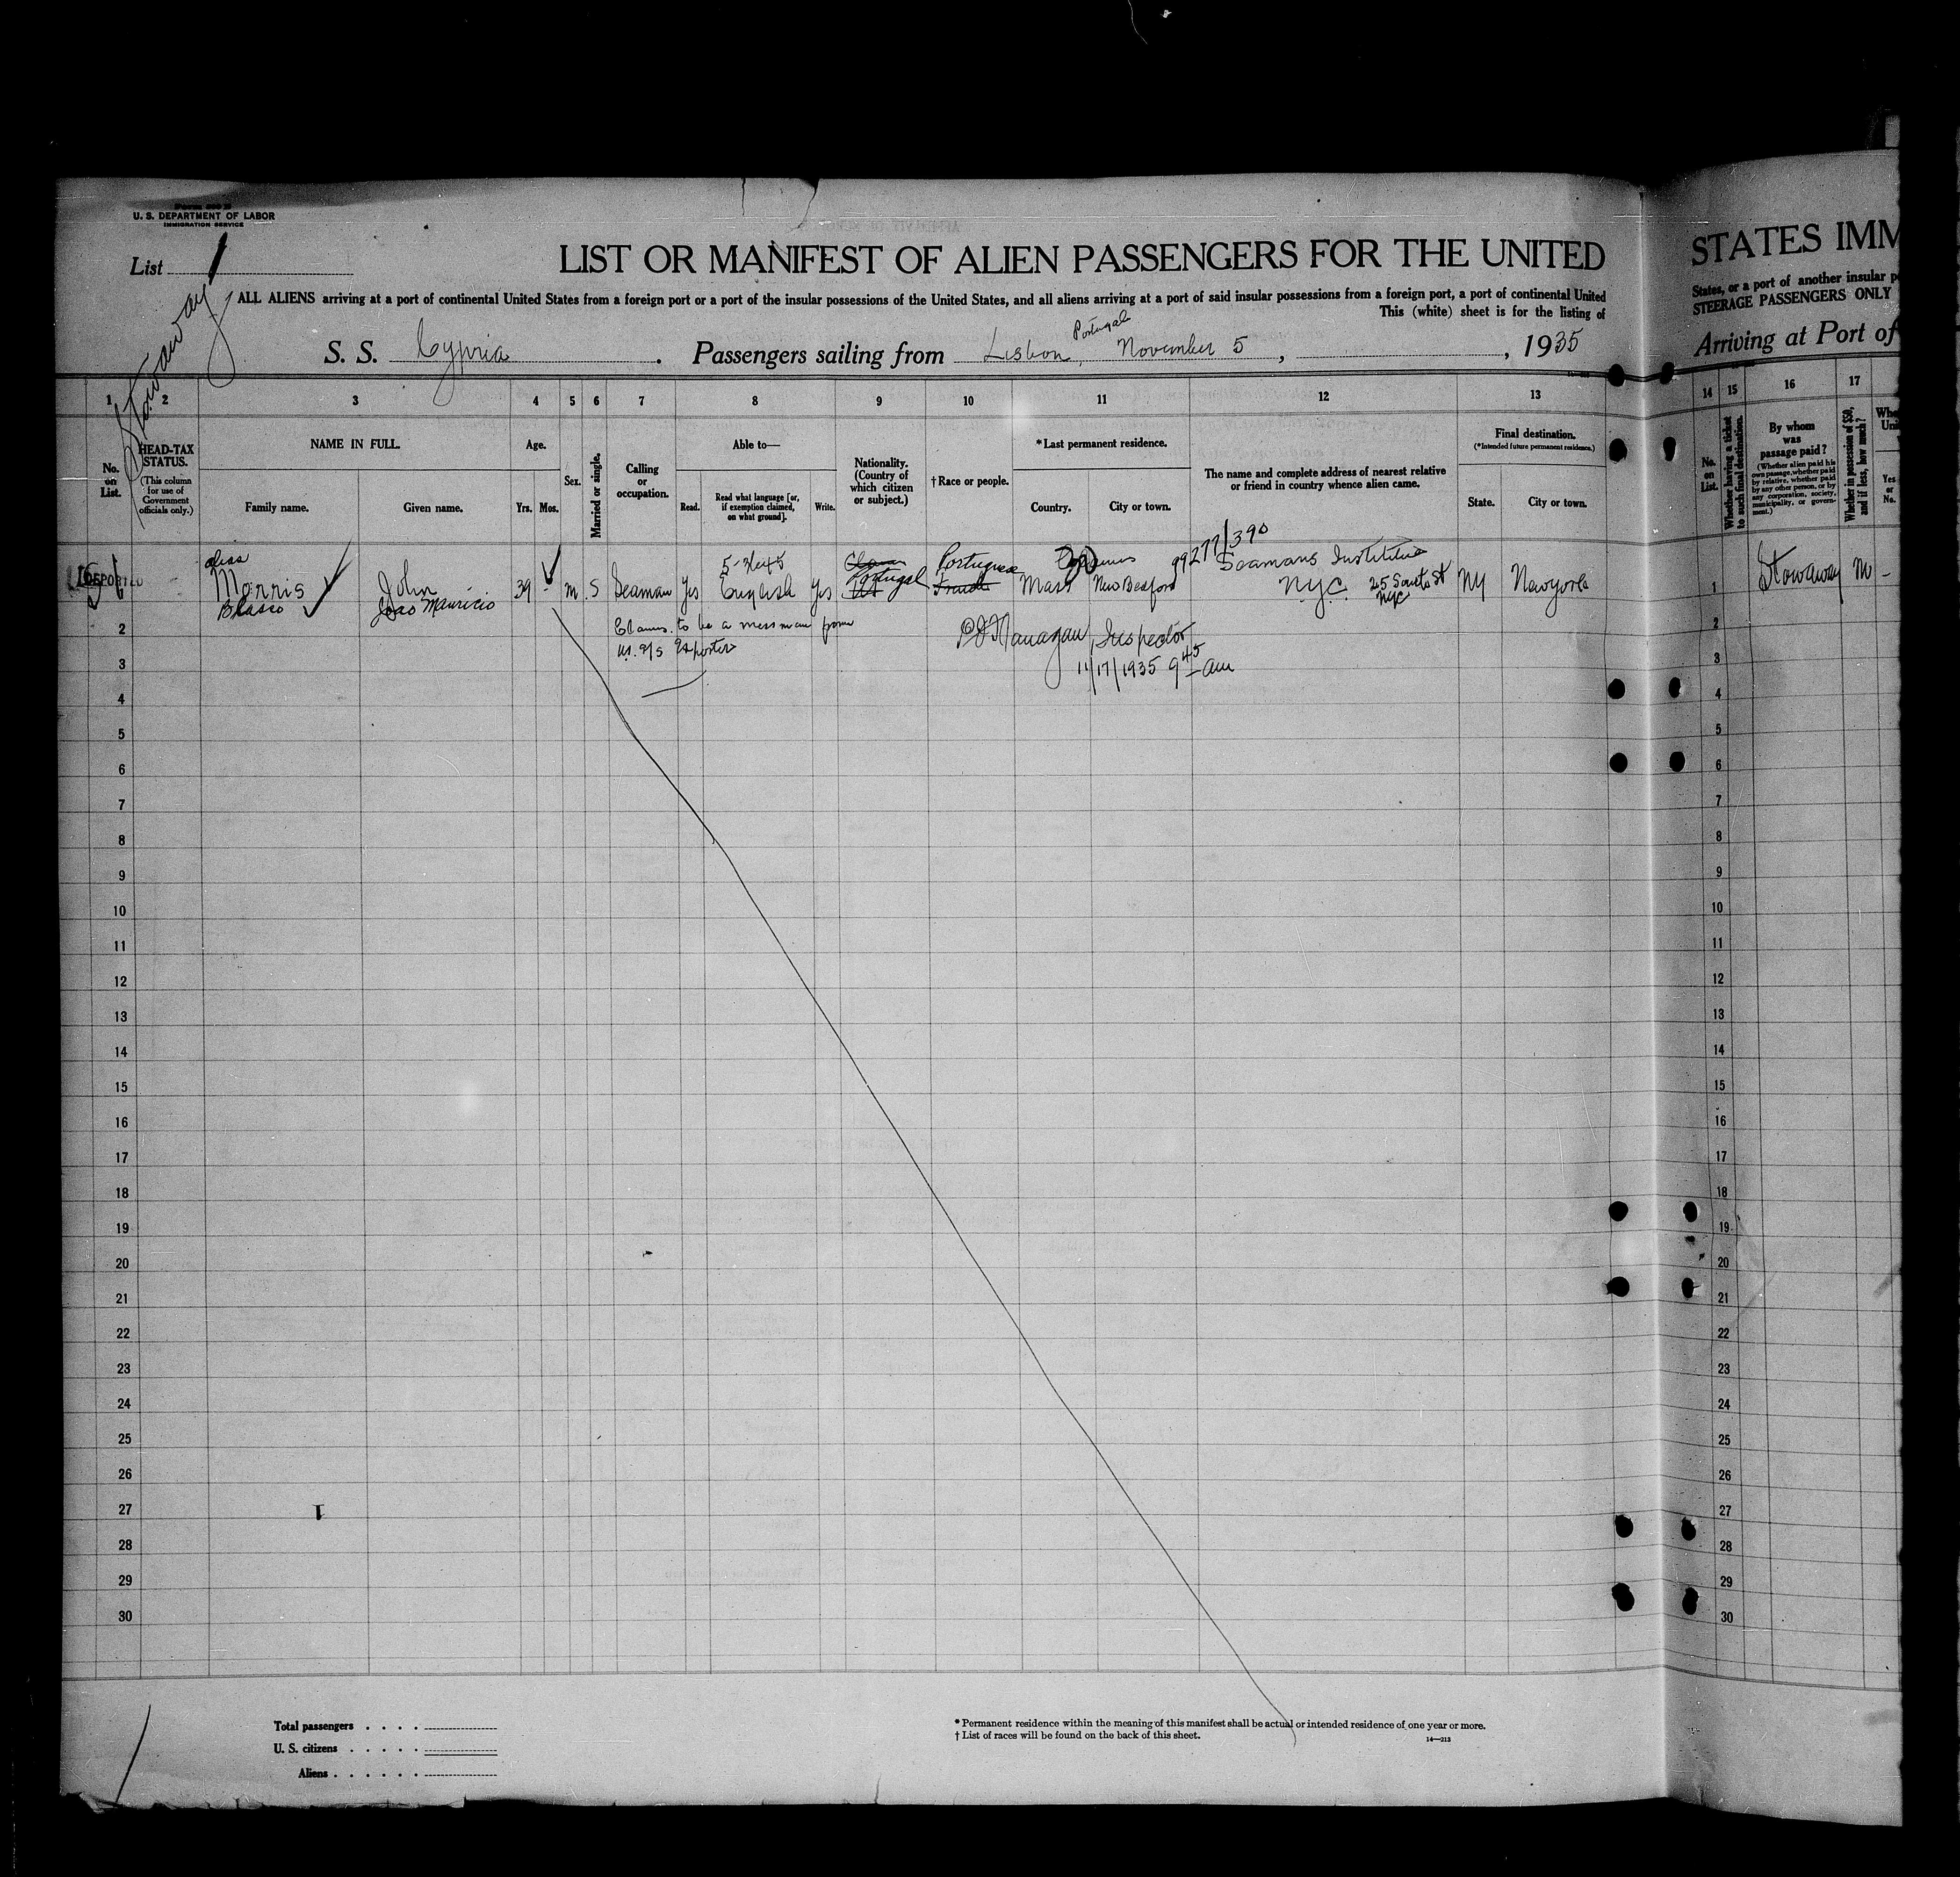 U. S. DEPARTMENT OF LABOR
IMMIGRATION SERVICE
List 1
Stowaway
LIST OR MANIFEST OF ALIEN PASSENGERS FOR THE UNITED
ALL ALIENS arriving at a port of continental United States from a foreign port or a port of the insular possessions of the United States, and all aliens arriving at a port of said insular possessions from a foreign port, a port of continental United
This (white) sheet is for the listing of
S. S. Cypria . Passengers sailing from Lisbon, Portugal November 5 , , 1935
1 2 3 4 5 6 7 8 9 10 11 12 13
No. on List.
HEAD-TAX STATUS.
(This column for use of Government officials only.)
NAME IN FULL.
Family name. Given name.
Age.
Yrs. Mos.
Sex.
Married or single.
Calling or occupation.
Able to—
Read. Read what language [or, if exemption claimed, on what ground]. Write.
Nationality. (Country of which citizen or subject.)
† Race or people.
* Last permanent residence.
Country. City or town.
The name and complete address of nearest relative or friend in country whence alien came.
Final destination.
(* Intended future permanent residence.)
State. City or town.
DEPORTED
alias
Morris John 39 m S Seaman Yes English Yes Portugal Portuguese Mass New Bedford
99277/390
Seamans Institute
NYC 25 South St NYC
NY New York
Joao Mauricio
Claims to be a messman from
U.S. S/S Exporter
Inspector
11/17/1935 9 45 am
2
3
4
5
6
7
8
9
10
11
12
13
14
15
16
17
18
19
20
21
22
23
24
25
26
27
28
29
30
Total passengers
U. S. citizens
Aliens
* Permanent residence within the meaning of this manifest shall be actual or intended residence of one year or more.
† List of races will be found on the back of this sheet.
14—213
STATES IMM
States, or a port of another insular
STEERAGE PASSENGERS ONLY
Arriving at Port of
14 15 16 17
No. on List.
Whether having a ticket to such final destination.
By whom was passage paid?
(Whether alien paid his own passage, whether paid by relative, whether paid by any other person, or by any corporation, society, municipality, or government.)
Whether in possession of $50, and if less, how much?
Yes or No.
1 Stowaway
2
3
4
5
6
7
8
9
10
11
12
13
14
15
16
17
18
19
20
21
22
23
24
25
26
27
28
29
30